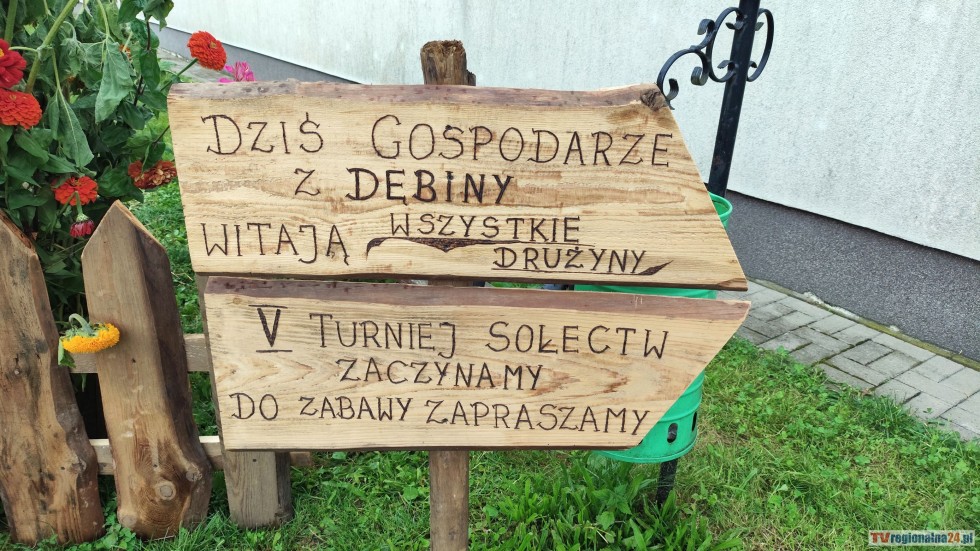 DZIŚ GOSPODARZE
Z DĘBINY
WITAJĄ WSZYSTKIE
DRUŻYNY
V TURNIEJ SOŁECTW
ZACZYNAMY
DO ZABAWY ZAPRASZAMY
TVregionalna24.pl